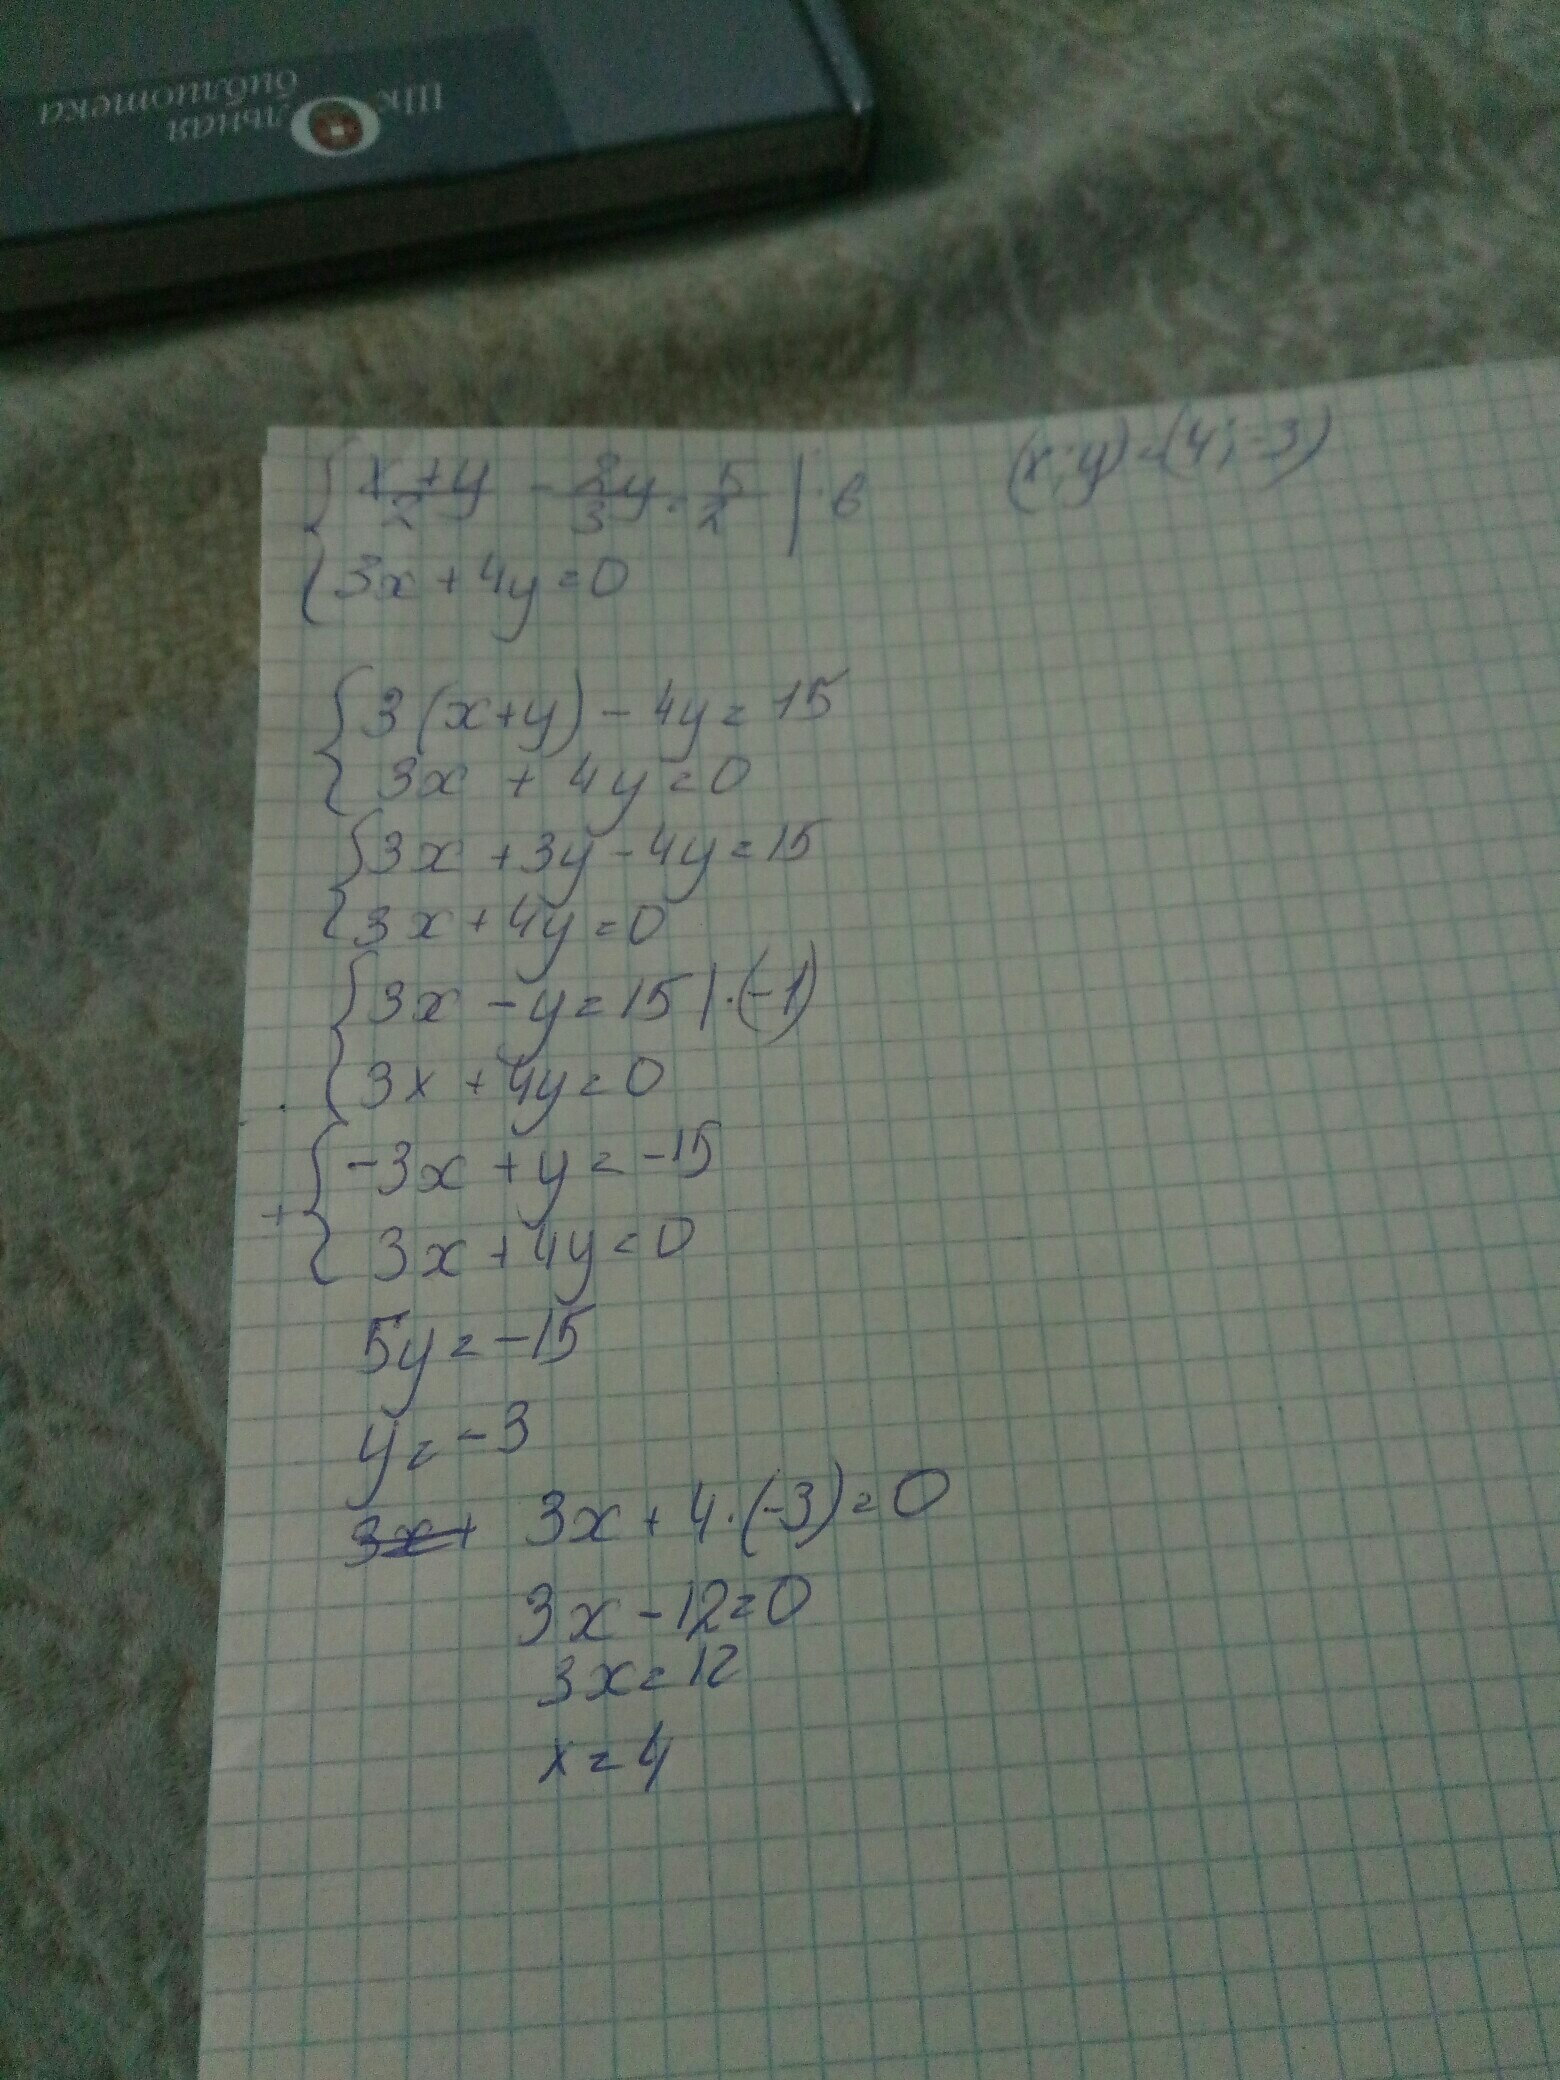 Школьная
библиотека
{ x+y/2 - 2y/3 = 5/2 | · 6 (x;y)=(4;-3)
3x + 4y = 0
{ 3(x+y) - 4y = 15
3x + 4y = 0
{ 3x + 3y - 4y = 15
3x + 4y = 0
{ 3x - y = 15 | · (-1)
3x + 4y = 0
+ { -3x + y = -15
3x + 4y = 0
5y = -15
y = -3
3x + 3x + 4 · (-3) = 0
3x - 12 = 0
3x = 12
x = 4